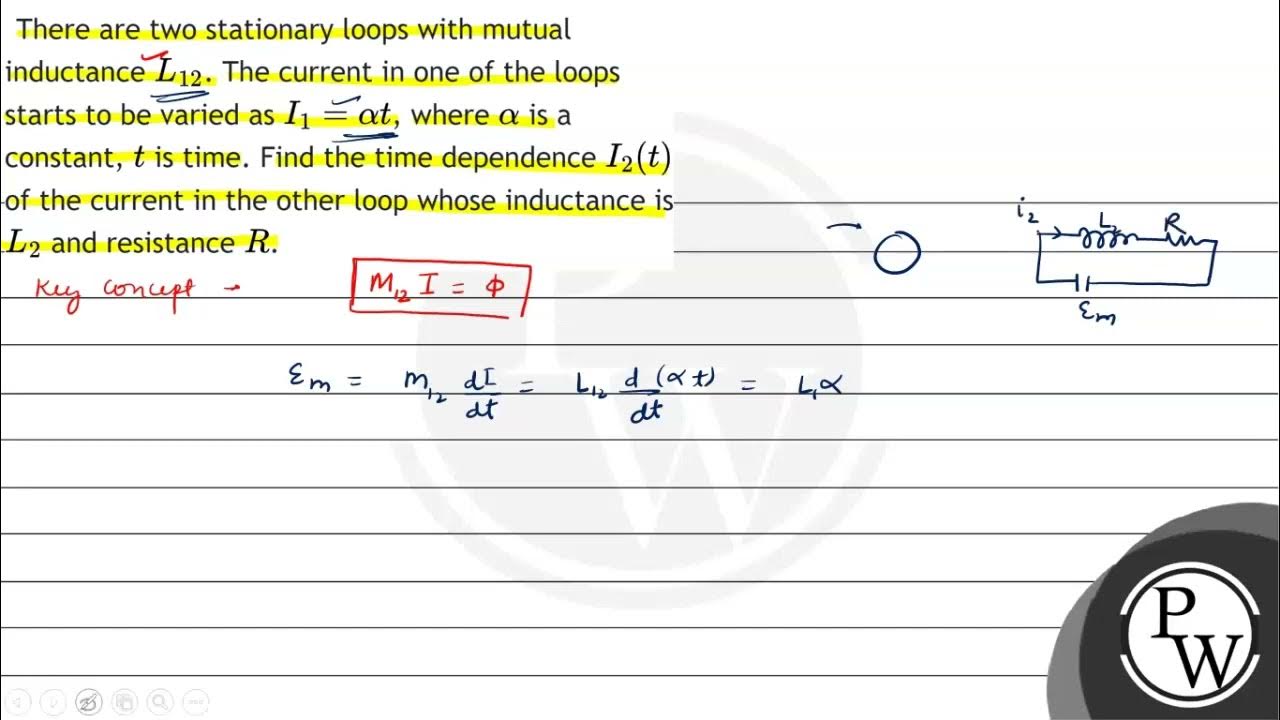 There are two stationary loops with mutual
inductance L₁₂. The current in one of the loops
starts to be varied as I₁ = αt, where α is a
constant, t is time. Find the time dependence I₂(t)
of the current in the other loop whose inductance is
L₂ and resistance R.
i₂ L₂ R
εm
Key concept -
M₁₂ I = Φ
εm = M₁₂ dI/dt = L₁₂ d(αt)/dt = L₁α
PW
PW